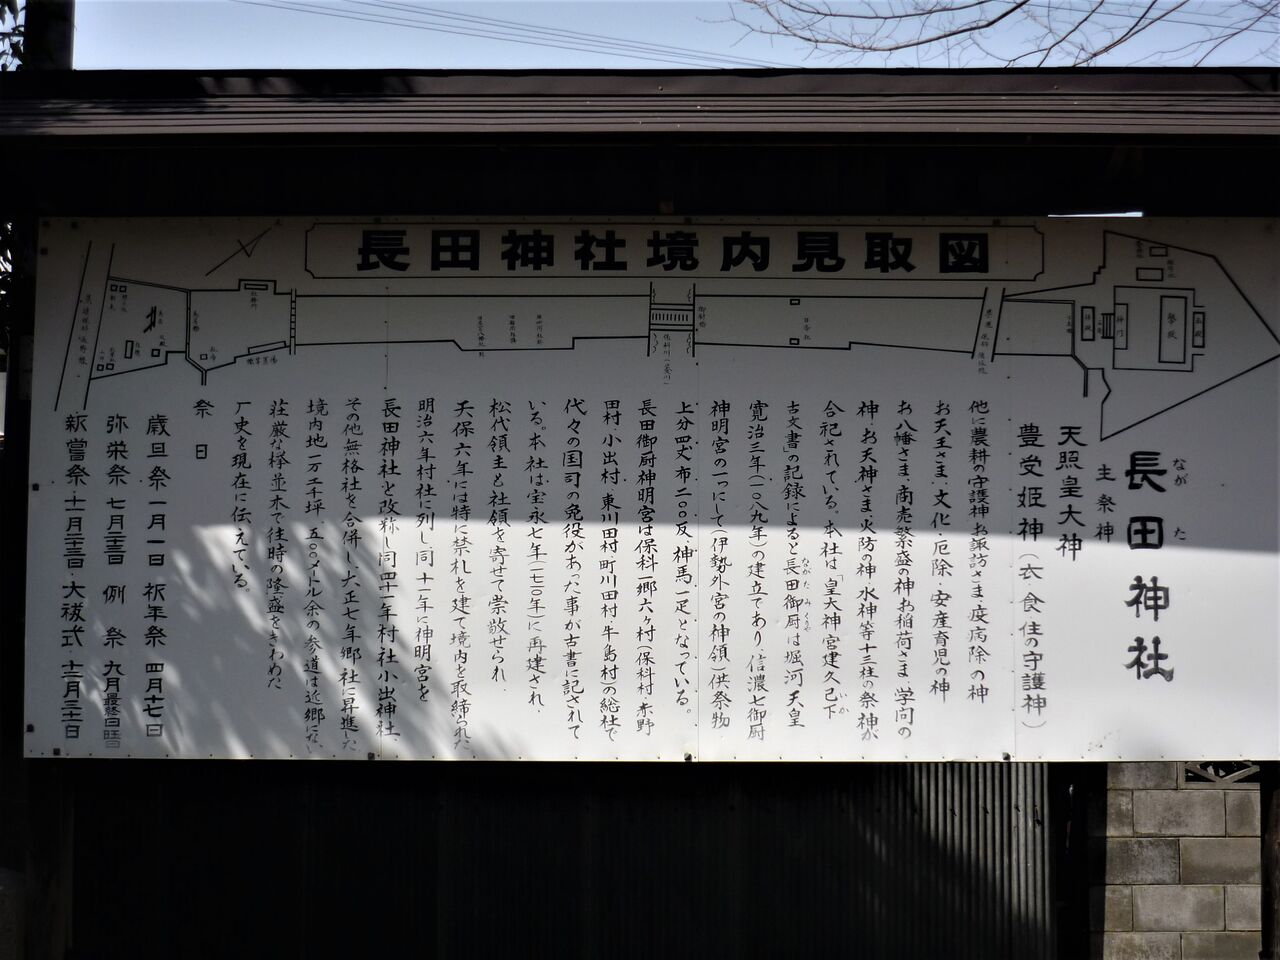 長田神社境内見取図
長田神社
なが た
主祭神
天照皇大神
豊受姫神(衣食住の守護神)
他に農耕の守護神お諏訪さま・疫病除の神
お天王さま・文化・厄除・安産育児の神
お八幡さま・商売繁盛の神お稲荷さま・学問の
神・お天神さま・火防の神・水神等十三柱の祭神が
合祀されている。本社は「皇大神宮建久己下
古文書」の記録によると長田御厨は堀河天皇
ながた みくりや
寛治三年(一〇八九年)の建立であり、信濃七御厨
神明宮の一つにして(伊勢外宮の神領)供祭物
上分四丈布二〇〇反、神馬一疋となっている。
長田御厨神明宮は保科一郷六ヶ村(保科村・赤野
田村・小出村・東川田村・町川田村・牛島村)の総社で
代々の国司の免役があった事が古書に記されて
いる。本社は宝永七年(一七一〇年)に再建され、
松代領主も社領を寄せて崇敬せられ
天保六年には特に禁札を建て境内を取締られた
明治六年村社に列し、同十一年に神明宮を
長田神社と改称し同四十一年村社小出神社、
その他無格社を合併し、大正七年郷社に昇進した
境内地一万二千坪、五〇〇メートル余の参道は近郷にない
荘厳な欅並木で往時の隆盛をきわめた
厂史を現在に伝えている。
祭日
歳旦祭 一月一日 祈年祭 四月廿七日
弥栄祭 七月廿三日 例祭 九月最終
新嘗祭・十一月廿三日・大祓式・十二月三十一日